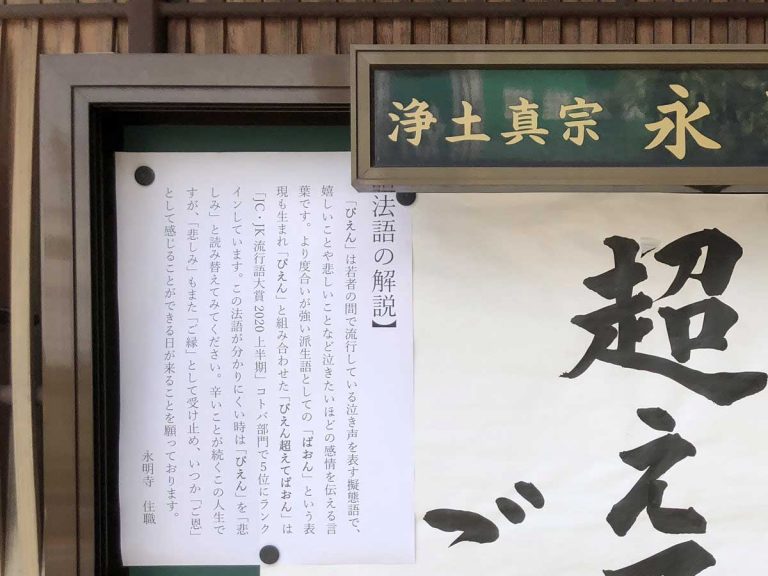 浄土真宗 永
超え
づ
法語の解説】
「ぴえん」は若者の間で流行している泣き声を表す擬態語で、
嬉しいことや悲しいことなど泣きたいほどの感情を伝える言
葉です。より度合いが強い派生語としての「ぱおん」という表
現も生まれ「ぴえん」と組み合わせた「ぴえん超えてぱおん」は
「JC・JK流行語大賞2020上半期」コトバ部門で5位にランク
インしています。この法語が分かりにくい時は「ぴえん」を「悲
しみ」と読み替えてみてください。辛いことが続くこの人生で
すが、「悲しみ」もまた「ご縁」として受け止め、いつか「ご恩」
として感じることができる日が来ることを願っております。
永明寺 住職